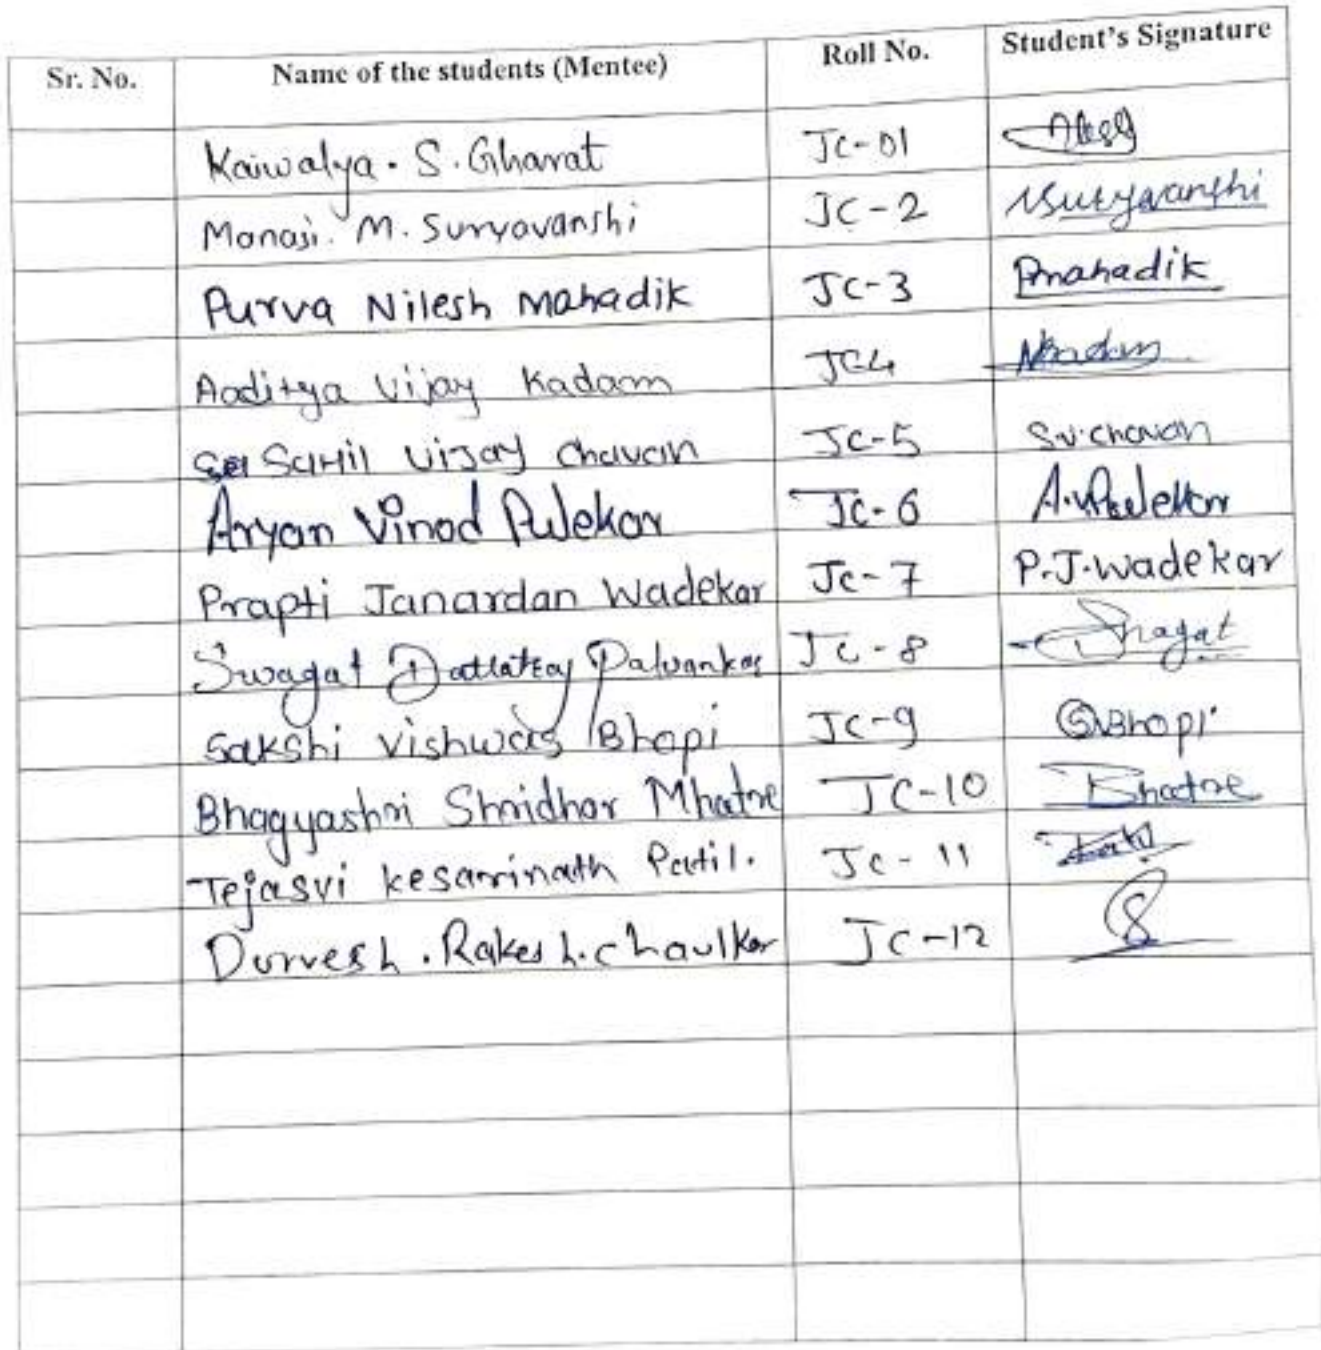 Sr. No. Name of the students (Mentee) Roll No. Student's Signature
Kaiwalya. S. Gharat JC-01
Manasi. M. Suryavanshi JC-2 MSuryavanshi
Purva Nilesh Mahadik JC-3 Pmahadik
Aaditya Vijay Kadam JC-4
Sahil Vijay Chavan JC-5 S.V.Chavan
Aryan Vinod Pulekar JC-6 A.V.Pulekar
Prapti Janardan Wadekar JC-7 P.J.Wadekar
Swagat Dattatray Palvankar JC-8
Sakshi Vishwas Bhopi JC-9 SVBhopi
Bhagyashri Shridhar Mhatre JC-10 Bhatre
Tejasvi kesarinath Patil. JC-11
Durvesh. Rakesh. Chaulkar JC-12